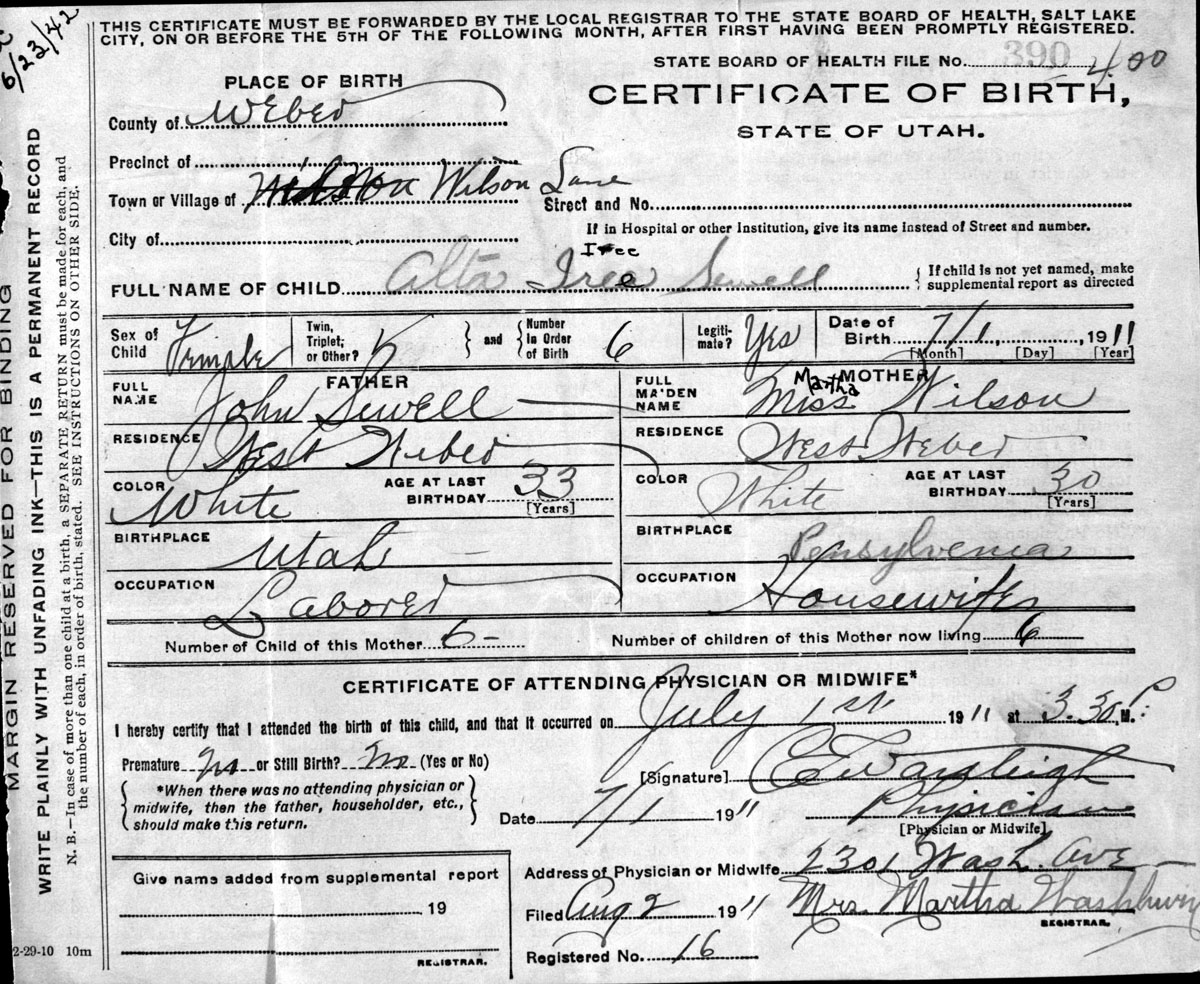 6/23/42
THIS CERTIFICATE MUST BE FORWARDED BY THE LOCAL REGISTRAR TO THE STATE BOARD OF HEALTH, SALT LAKE
CITY, ON OR BEFORE THE 5TH OF THE FOLLOWING MONTH, AFTER FIRST HAVING BEEN PROMPTLY REGISTERED.
STATE BOARD OF HEALTH FILE No. 390 400
CERTIFICATE OF BIRTH,
STATE OF UTAH.
PLACE OF BIRTH
County of Weber
Precinct of
Town or Village of Wilson Lane
Street and No.
City of
If in Hospital or other Institution, give its name instead of Street and number.
Iree
FULL NAME OF CHILD Alta Iree Sewell
{ If child is not yet named, make
supplemental report as directed
Sex of Child Female
Twin, Triplet; or Other?
} and { Number in Order of Birth 6
Legitimate? Yes
Date of Birth 7/1, 1911
[Month] [Day] [Year]
FATHER
FULL NAME John Sewell
RESIDENCE West Weber
COLOR White
AGE AT LAST BIRTHDAY 33 [Years]
BIRTHPLACE Utah
OCCUPATION Laborer
MOTHER
FULL MAIDEN NAME Martha Miss Wilson
RESIDENCE West Weber
COLOR White
AGE AT LAST BIRTHDAY 30 [Years]
BIRTHPLACE Pensylvenia
OCCUPATION Housewife
Number of Child of this Mother 6 - Number of children of this Mother now living 6
CERTIFICATE OF ATTENDING PHYSICIAN OR MIDWIFE*
I hereby certify that I attended the birth of this child, and that it occurred on July 1st 1911 at 3.30 P.M.
Premature No or Still Birth? No (Yes or No)
*When there was no attending physician or
midwife, then the father, householder, etc.,
should make this return.
[Signature]
Date 7/1 1911 Physician
[Physician or Midwife]
Give name added from supplemental report
19
REGISTRAR.
Address of Physician or Midwife 2301 Wash. Ave
Filed Aug 2 1911 Mrs. Martha
REGISTRAR.
Registered No. 16
2-29-10 10m
MARGIN RESERVED FOR BINDING
WRITE PLAINLY WITH UNFADING INK—THIS IS A PERMANENT RECORD
N. B.—In case of more than one child at a birth, a SEPARATE RETURN must be made for each, and
the number of each, in order of birth, stated. SEE INSTRUCTIONS ON OTHER SIDE.